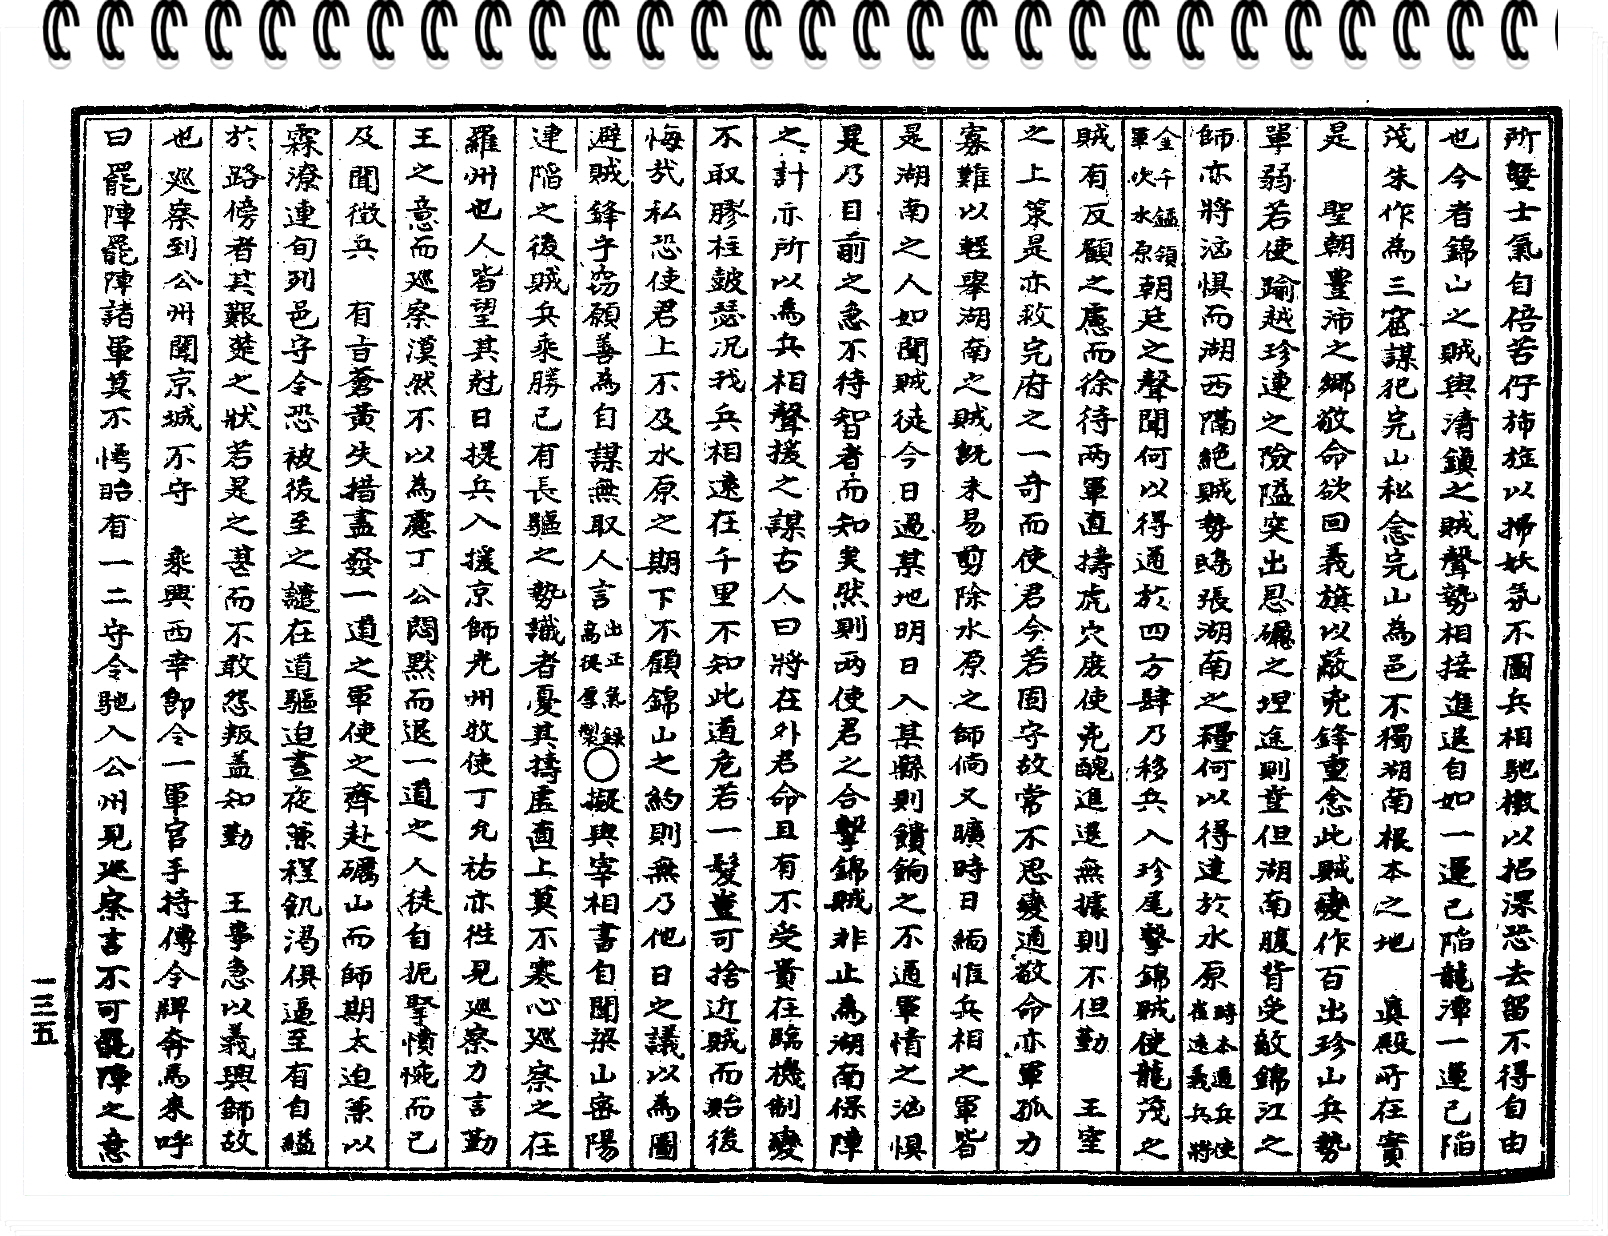 所蟄士氣自倍若伃斾旌以掃妖氛不圖兵相馳檄以招深恐去留不得自由
也今者錦山之賊與清鎭之賊聲勢相接進退自如一運已陷龍潭一運已陷
茂朱作為三窟謀犯完山私念完山為邑不獨湖南根本之地　眞殿所在實
是　聖朝豐沛之鄉敬命欲回義旗以蔽兇鋒重念此賊變作百出珍山兵勢
單弱若使踰越珍連之險隘突出恩礪之坦途則豈但湖南腹背受敵錦江之
師亦將洶惧而湖西隔絶賊勢鴟張湖南之糧何以得達於水原時本道兵使崔遠義兵將
金千鎰領軍次水原朝廷之聲聞何以得通於四方肆乃移兵入珍尾擊錦賊使龍茂之
賊有反顧之慮而徐待兩軍直擣虎穴庶使兇醜進退無據則不但勤　王室
之上策是亦救完府之一奇而使君今若固守故常不思變通敬命亦軍孤力
寡難以輕擧湖南之賊旣未易剪除水原之師倘又曠時日緬惟兵相之軍皆
是湖南之人如聞賊徒今日過某地明日入某縣則饋餉之不通軍情之洶惧
是乃目前之急不待智者而知矣然則兩使君之合擊錦賊非止為湖南保障
之計亦所以為兵相聲援之謀古人曰將在外君命且有不受貴在臨機制變
不取膠柱皷瑟況我兵相遠在千里不知此道危若一髮豈可捨近賊而貽後
悔哉私恐使君上不及水原之期下不顧錦山之約則無乃他日之議以為圖
避賊鋒乎窃願善為自謀無取人言出正氣錄高從厚製○擬與宰相書自聞梁山密陽
連陷之後賊兵乘勝已有長驅之勢識者憂其擣虛直上莫不寒心巡察之在
羅州也人皆望其尅日提兵入援京師光州牧使丁允祐亦徃見巡察力言勤
王之意而巡察漠然不以為慮丁公悶默而退一道之人徒自扼擥憤惋而已
及聞徵兵　有旨蒼黃失措盡發一道之軍使之齊赴礪山而師期太迫兼以
霖潦連旬列邑守令恐被後至之譴在道驅迫晝夜兼程飢渴俱逼至有自縊
於路傍者其艱楚之狀若是之甚而不敢怨叛盖知勤　王事急以義興師故
也巡察到公州聞京城不守　乘輿西幸即令一軍官手持傳令牌奔馬來呼
曰罷陣罷陣諸軍莫不愕眙有一二守令馳入公州見巡察言不可罷陣之意
一三五